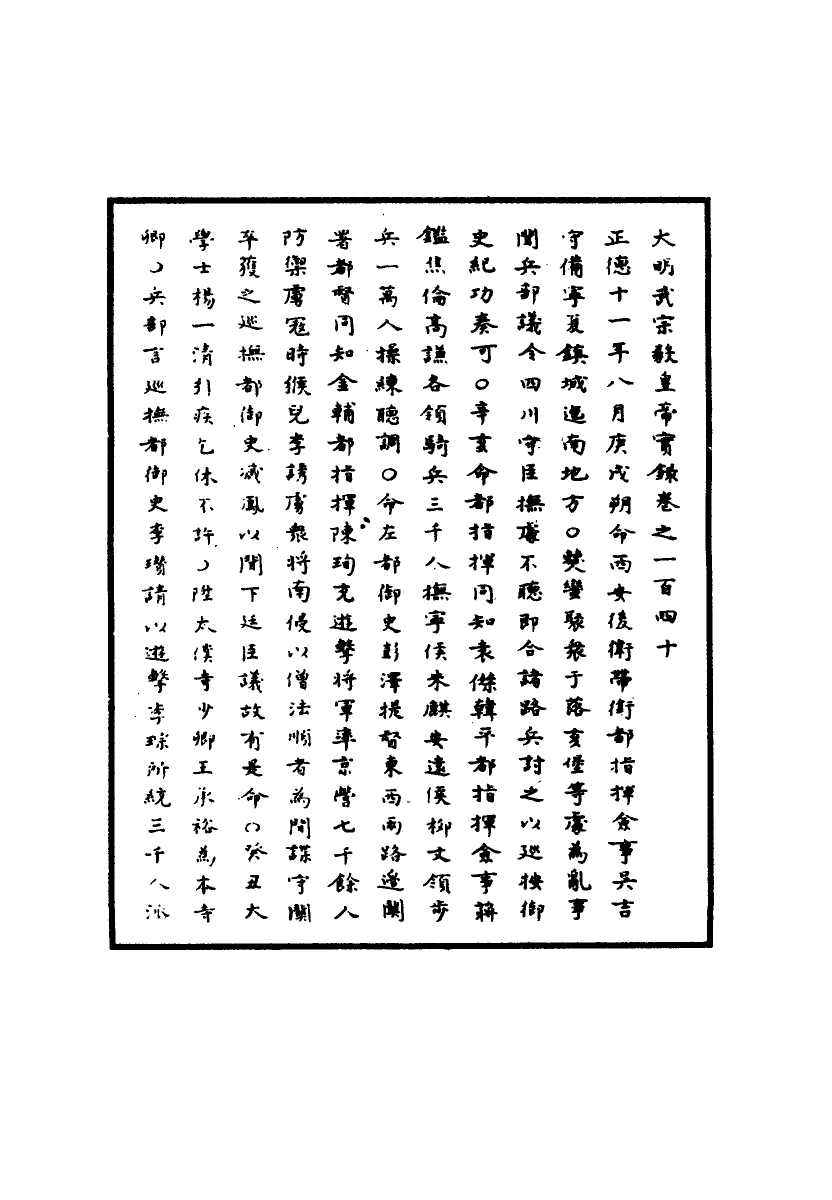 大明武宗毅皇帝實錄卷之一百四十
正德十一年八月庚戌朔命西安後衛帶衛都指揮僉事吳吉
守備寧夏鎮城迤南地方○僰蠻聚衆于落亥堡等處為亂事
聞兵部議令四川守臣撫處不聽即合諸路兵討之以巡按御
史紀功奏可○辛亥命都指揮同知袁傑韓平都指揮僉事蔣
鑑焦倫高謙各領騎兵三千人撫寧侯朱麒安遠侯柳文領步
兵一萬人操練聽調○命左都御史彭澤提督東西兩路邊關
署都督同知金輔都指揮陳珣充遊擊將軍率京營七千餘人
防禦虜寇時猴兒李誘虜衆將南侵以僧法順者為間諜守關
卒獲之巡撫都御史臧鳳以聞下廷臣議故有是命○癸丑大
學士楊一清引疾乞休不許○陞太僕寺少卿王承裕為本寺
卿○兵部言巡撫都御史李瓚請以遊擊李琮所統三千人派